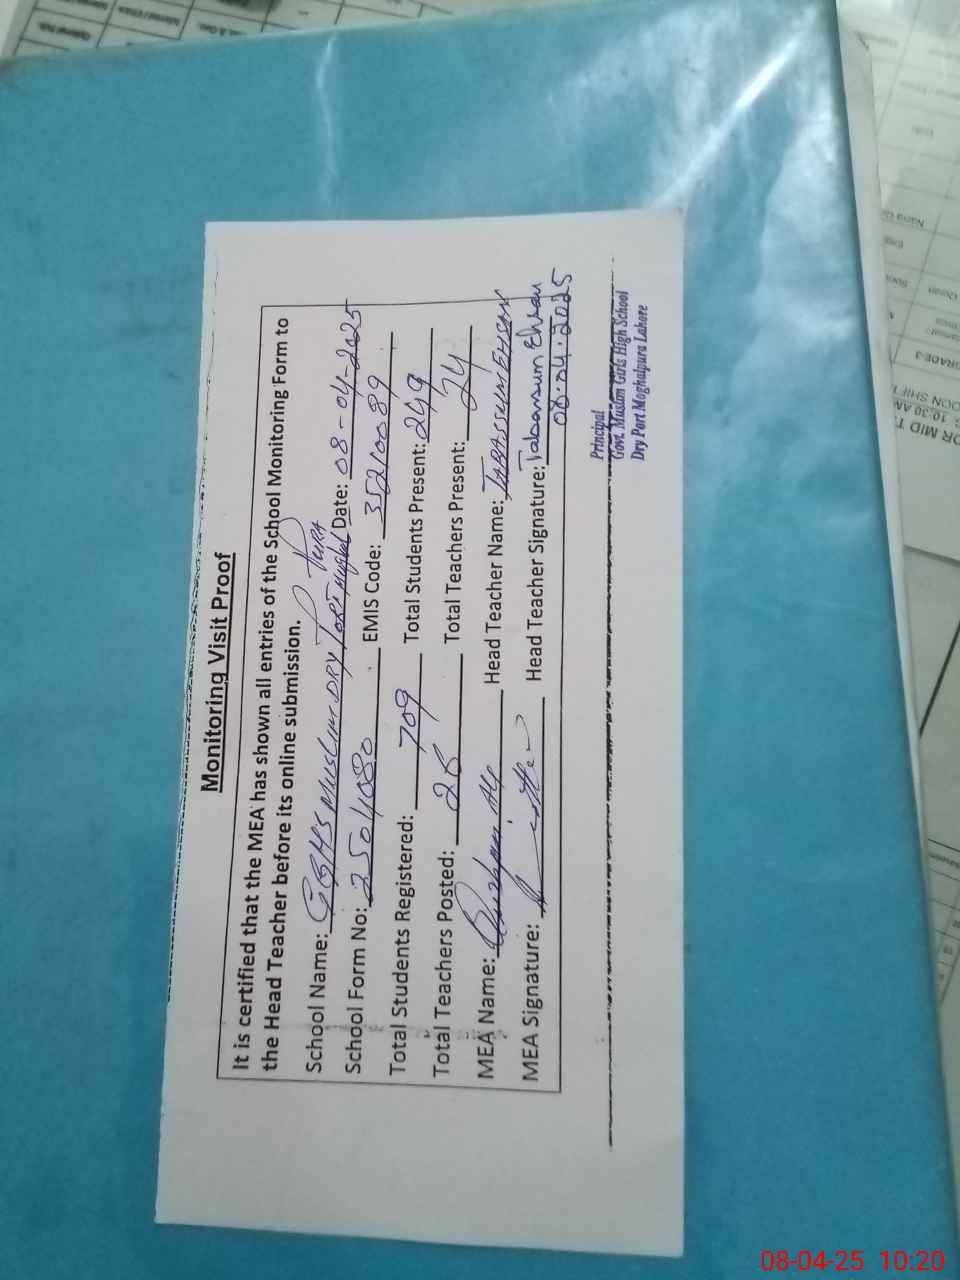 Monitoring Visit Proof
It is certified that the MEA has shown all entries of the School Monitoring Form to
the Head Teacher before its online submission.
School Name: GGHS MUSLIM DRY PORT Mughal PURA Date: 08-04-2025
School Form No: 2504080 EMIS Code: 35210089
Total Students Registered: 709 Total Students Present: 249
Total Teachers Posted: 26 Total Teachers Present: 24
MEA Name: Ali Head Teacher Name: TABASSUM EHSAN
MEA Signature: Head Teacher Signature: Tabassum Ehsan
08.04.2025
Principal
Govt. Muslim Girls High School
Dry Port Moghalpura Lahore
GRADE-
OON SHIFT
10:30 AM
OR MID T
08-04-25 10:20